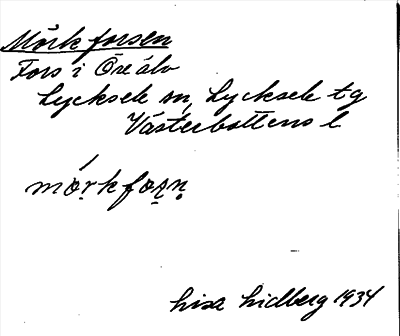 Mörkforsen
Fors i Öreälv
Lycksele sn, Lycksele tg
Västerbottens l
mo̤rkfo̤ṛṇ
Lisa Lidberg 1934